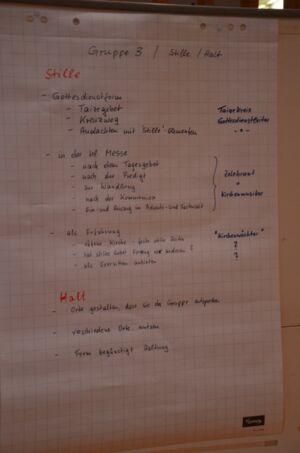 Gruppe 3 / Stille / Halt
Stille
- Gottesdienstform
- Taizégebet Taizékreis
- Kreuzweg Gottesdienstleiter
- Andachten mit "Stille"-Elementen - " -
- in der hl. Messe
- nach dem Tagesgebet
- nach der Predigt Zelebrant
- zur Wandlung +
- nach der Kommunion Kirchenmusiker
- Ein- und Auszug im Advents- und Fastenzeit
- als Erfahrung "Kirchenwächter"
- offene Kirche - feste stille Zeiten ?
- ?
- als Exerzitien anbieten
Halt
- Orte gestalten, dass sie der Gruppe entsprechen
- verschiedene Orte nutzen
- Form begünstigt Haltung